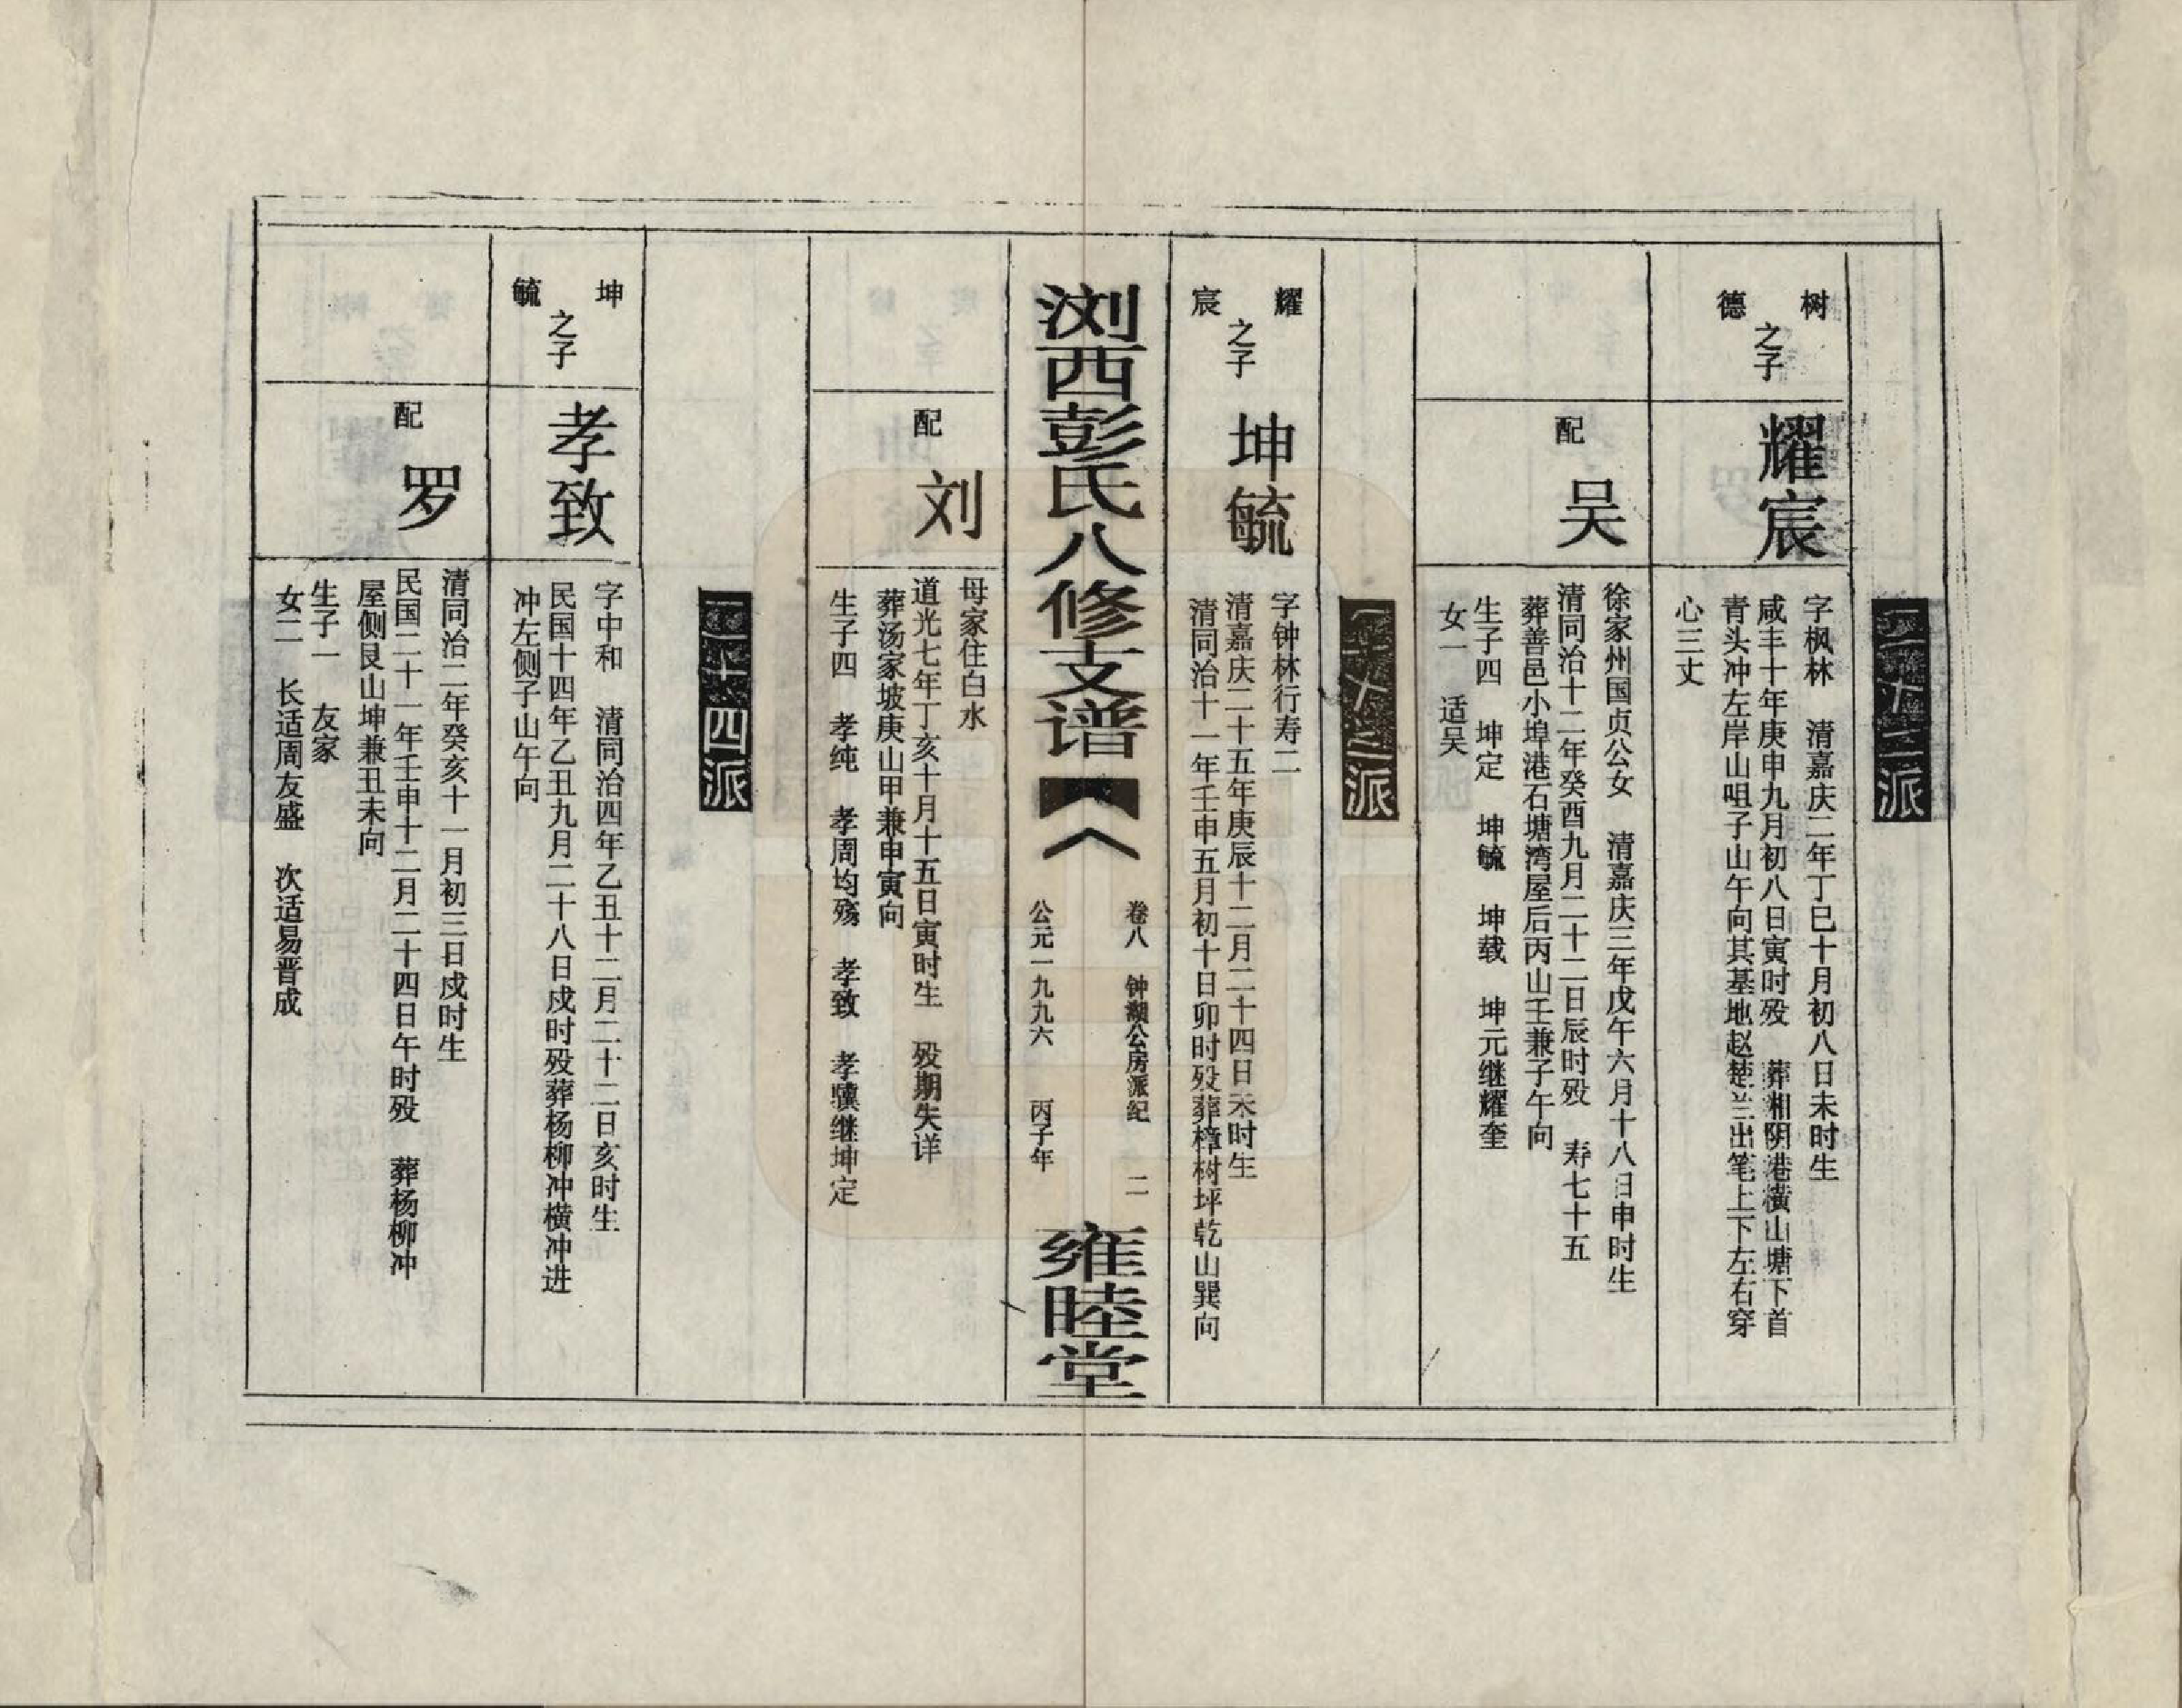 二十二派
树德之子
耀宸
字枫林 清嘉庆二年丁巳十月初八日未时生
咸丰十年庚申九月初八日寅时殁 葬湘阴港横山塘下首
青头冲左岸山咀子山午向其基地赵楚兰出笔上下左右穿
心三丈
配 吴
徐家州国贞公女 清嘉庆三年戊午六月十八日申时生
清同治十二年癸酉九月二十二日辰时殁 寿七十五
葬善邑小埠港石塘湾屋后丙山壬兼子午向
生子四 坤定 坤毓 坤载 坤元继耀奎
女一 适吴
二十三派
耀宸之子
坤毓
字钟林行寿二
清嘉庆二十五年庚辰十二月二十四日未时生
清同治十一年壬申五月初十日卯时殁葬樟树坪乾山巽向
浏西彭氏八修支谱
卷八 钟湖公房派纪 二
公元一九九六 丙子年
雍睦堂
配 刘
母家住白水
道光七年丁亥十月十五日寅时生 殁期失详
葬汤家坡庚山甲兼申寅向
生子四 孝纯 孝周均殇 孝致 孝骥继坤定
二十四派
坤毓之子
孝致
字中和 清同治四年乙丑十二月二十二日亥时生
民国十四年乙丑九月二十八日戌时殁葬杨柳冲横冲进
冲左侧子山午向
配 罗
清同治二年癸亥十一月初三日戌时生
民国二十一年壬申十二月二十四日午时殁 葬杨柳冲
屋侧艮山坤兼丑未向
生子一 友家
女二 长适周友盛 次适易晋成